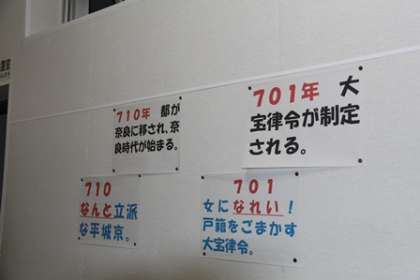 710年 都が
奈良に移され、奈
良時代が始まる。
701年 大
宝律令が制定
される。
710
なんと立派
な平城京。
701
女になれい!
戸籍をごまかす
大宝律令。